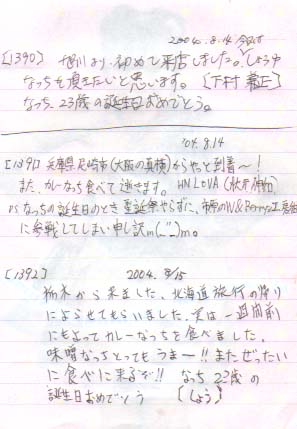 2004.8.14
[1390] 初めて来店しました。しょうゆ
なっちを頂きたいと思います。[下村 ]
なっち、23歳の誕生日おめでとう。
'04.8.14
[1391] 兵庫県尼崎市(大阪の真横)からやっと到着〜!
また、カレーなっち食べて逝きます。HN LOVA
PS なっちの誕生日のとき生誕祭やらずに、市原のW&Berryz工房
に参戦してしまい申し訳m(_"_)m。
[1392] 2004.8/15
栃木から来ました、北海道旅行の帰り
によらせてもらいました。実は一週間前
にもよってカレーなっちを食べました。
味噌なっちとってもうまー!!またぜったい
に食べに来るぞ!! なっち 23歳の
誕生日おめでとう [しょう]